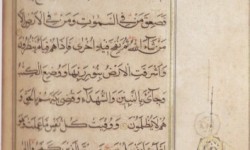 فصعق من في السموات ومن في الأرض إلا
من شاء الله ثم نفخ فيه أخرى فإذا هم قيام ينظرون
وأشرقت الأرض بنور ربها ووضع الكتب
وجائ بالنبين والشهداء وقضي بينهم بالحق و
هم لا يظلمون ووفيت كل نفس ما عملت